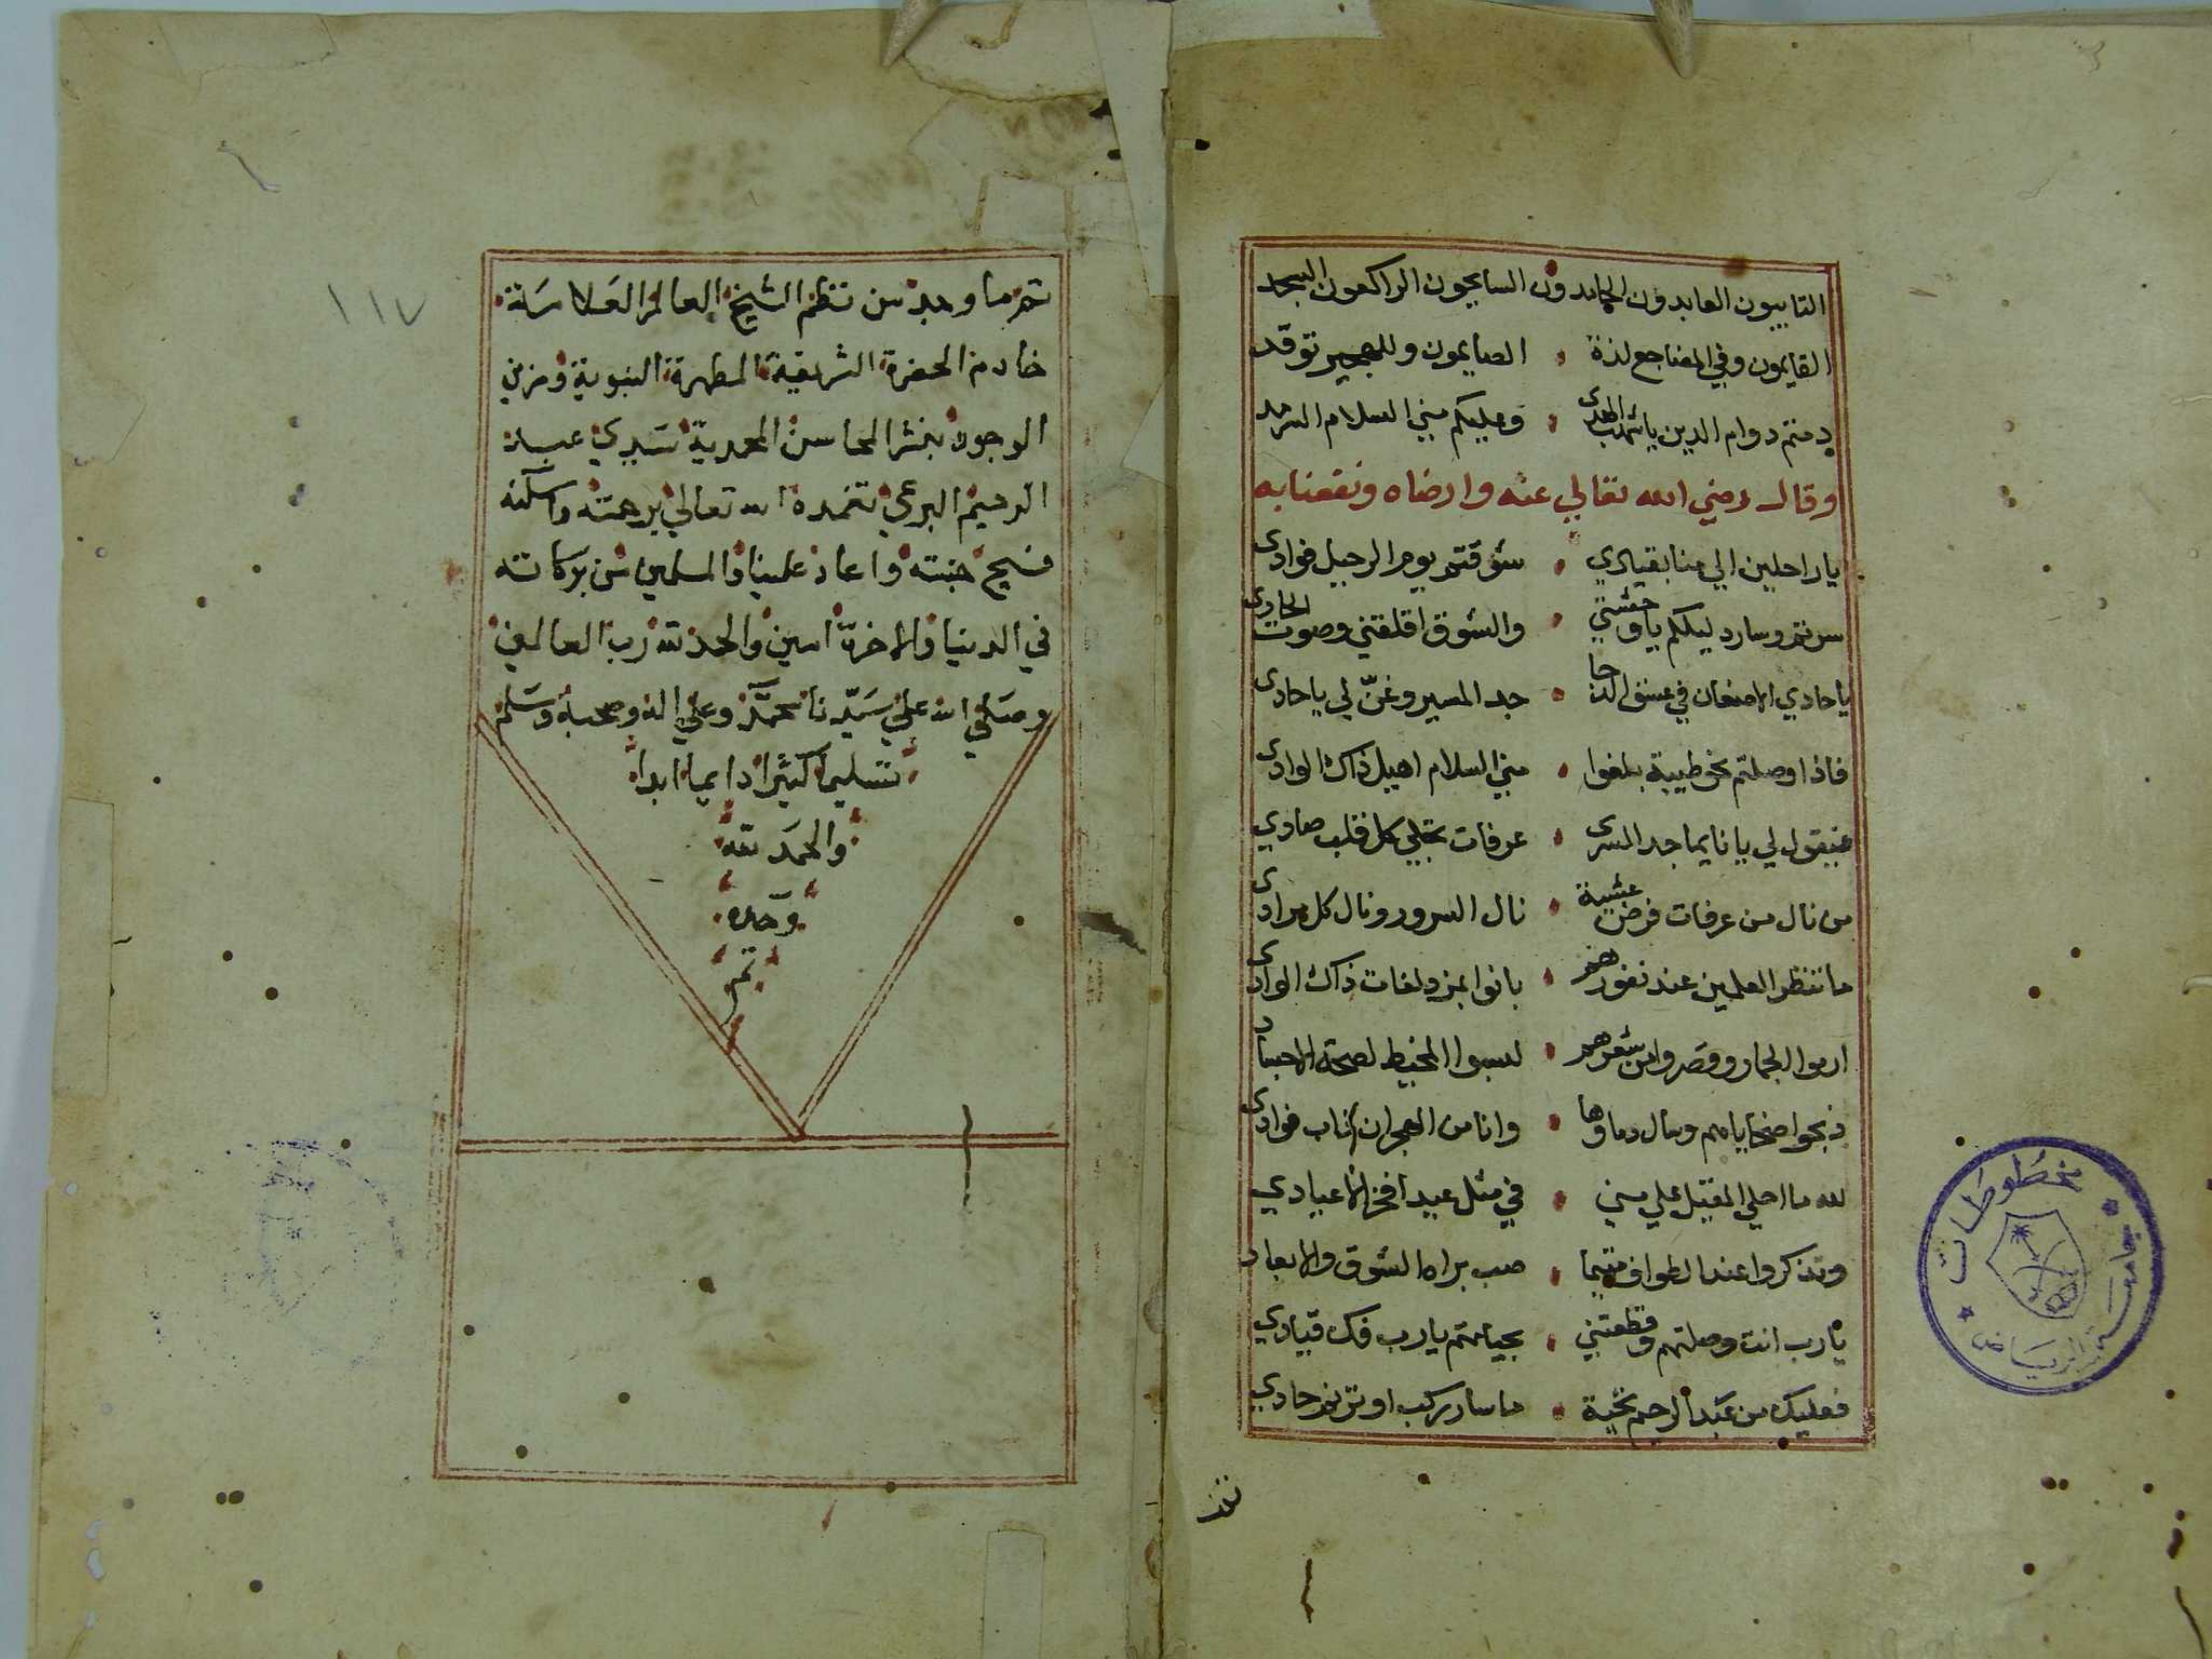 التايبون العابدون الحامدون السايحون الراكعون السجد
القايمون وفي المضاجع لذة الصايمون وللهجير توقد
دمتم دوام الدين يا شهب الهدى وعليكم مني السلام السرمد
وقال رضي الله تعالي عنه وارضاه ونفعنا به
يا راحلين الي منا بقيادي شوقتم يوم الرحيل فوادى
سرتم وسار دليلكم يا وحشتي والشوق اقلقني وصوت الحادى
يا حادي الاضعان في عسق الدجا جد المسير وغن لي يا حادى
فاذا وصلتم نحو طيبة بلغوا مني السلام اهيل ذاك الوادى
فيقول لي يا نايما جد السرى عرفات تجلي كل قلب صادي
من نال من عرفات فرض عشية نال السرور ونال كل مرادى
ما تنظر العلمين عند نفورهم باتوا بمزدلفات ذاك الوادى
ارموا الجمار وقصروا من شعرهم لبسوا المخيط لصحة الاجساد
ذبحوا ضحاياهم وسال دماوها وانا من الهجران ذاب فوادى
لله ما احلي المقيل علي مني في مثل عيد افخر الاعيادي
وتذكروا عند الطواف متيما صب براه الشوق والابعاد
يا رب انت وصلتهم وقطعتني بحياتهم يا رب فك قيادي
فعليك من عبد الرحيم تحية ما سار ركب او ترنم حادي
تم
١١٧
تم ما وجد من نظم الشيخ العالم العلامة
خادم الحضرة الشريفة المطهرة النبوية ومزين
الوجود بنشر المحاسن المحمدية سيدي عبد
الرحيم البرعي تغمده الله تعالي برحمته واسكنه
فسيح جنته واعاد علينا والمسلمين من بركاته
في الدنيا والاخرة امين والحمد لله رب العالمين
وصلي الله علي سيدنا محمد وعلي اله وصحبه وسلم
تسليما كثيرا دايما ابدا
والحمد لله
وحده
تم
مخطوطات
جامعة الرياض